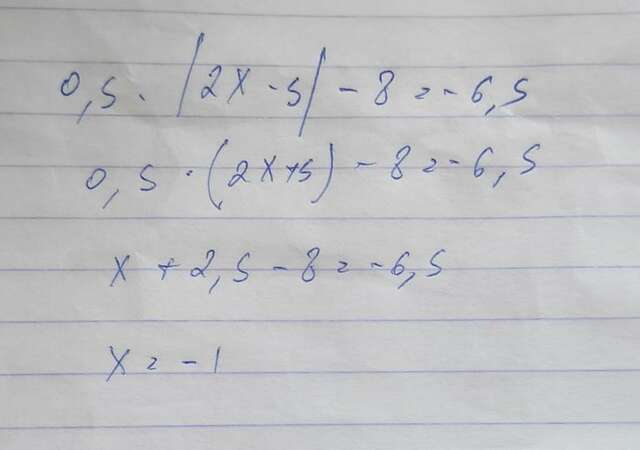 0,5 · |2x - 5| - 8 = -6,5
0,5 · (2x+5) - 8 = -6,5
x + 2,5 - 8 = -6,5
x = -1